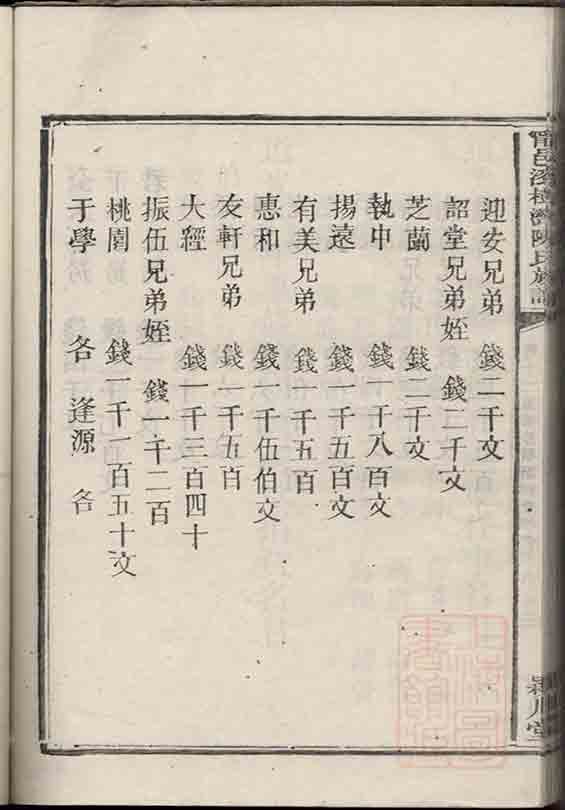 迎安兄弟 錢二千文
詔堂兄弟姪 錢二千文
芝蘭 錢二千文
執中 錢一千八百文
揚遠 錢一千五百文
有美兄弟 錢一千五百
惠和 錢一千伍伯文
友軒兄弟 錢一千五百
大經 錢一千三百四十
振伍兄弟姪 錢一千二百
桃園 錢一千一百五十文
于學 各 逢源 各
陳氏族譜
潁川堂
上海圖書館藏